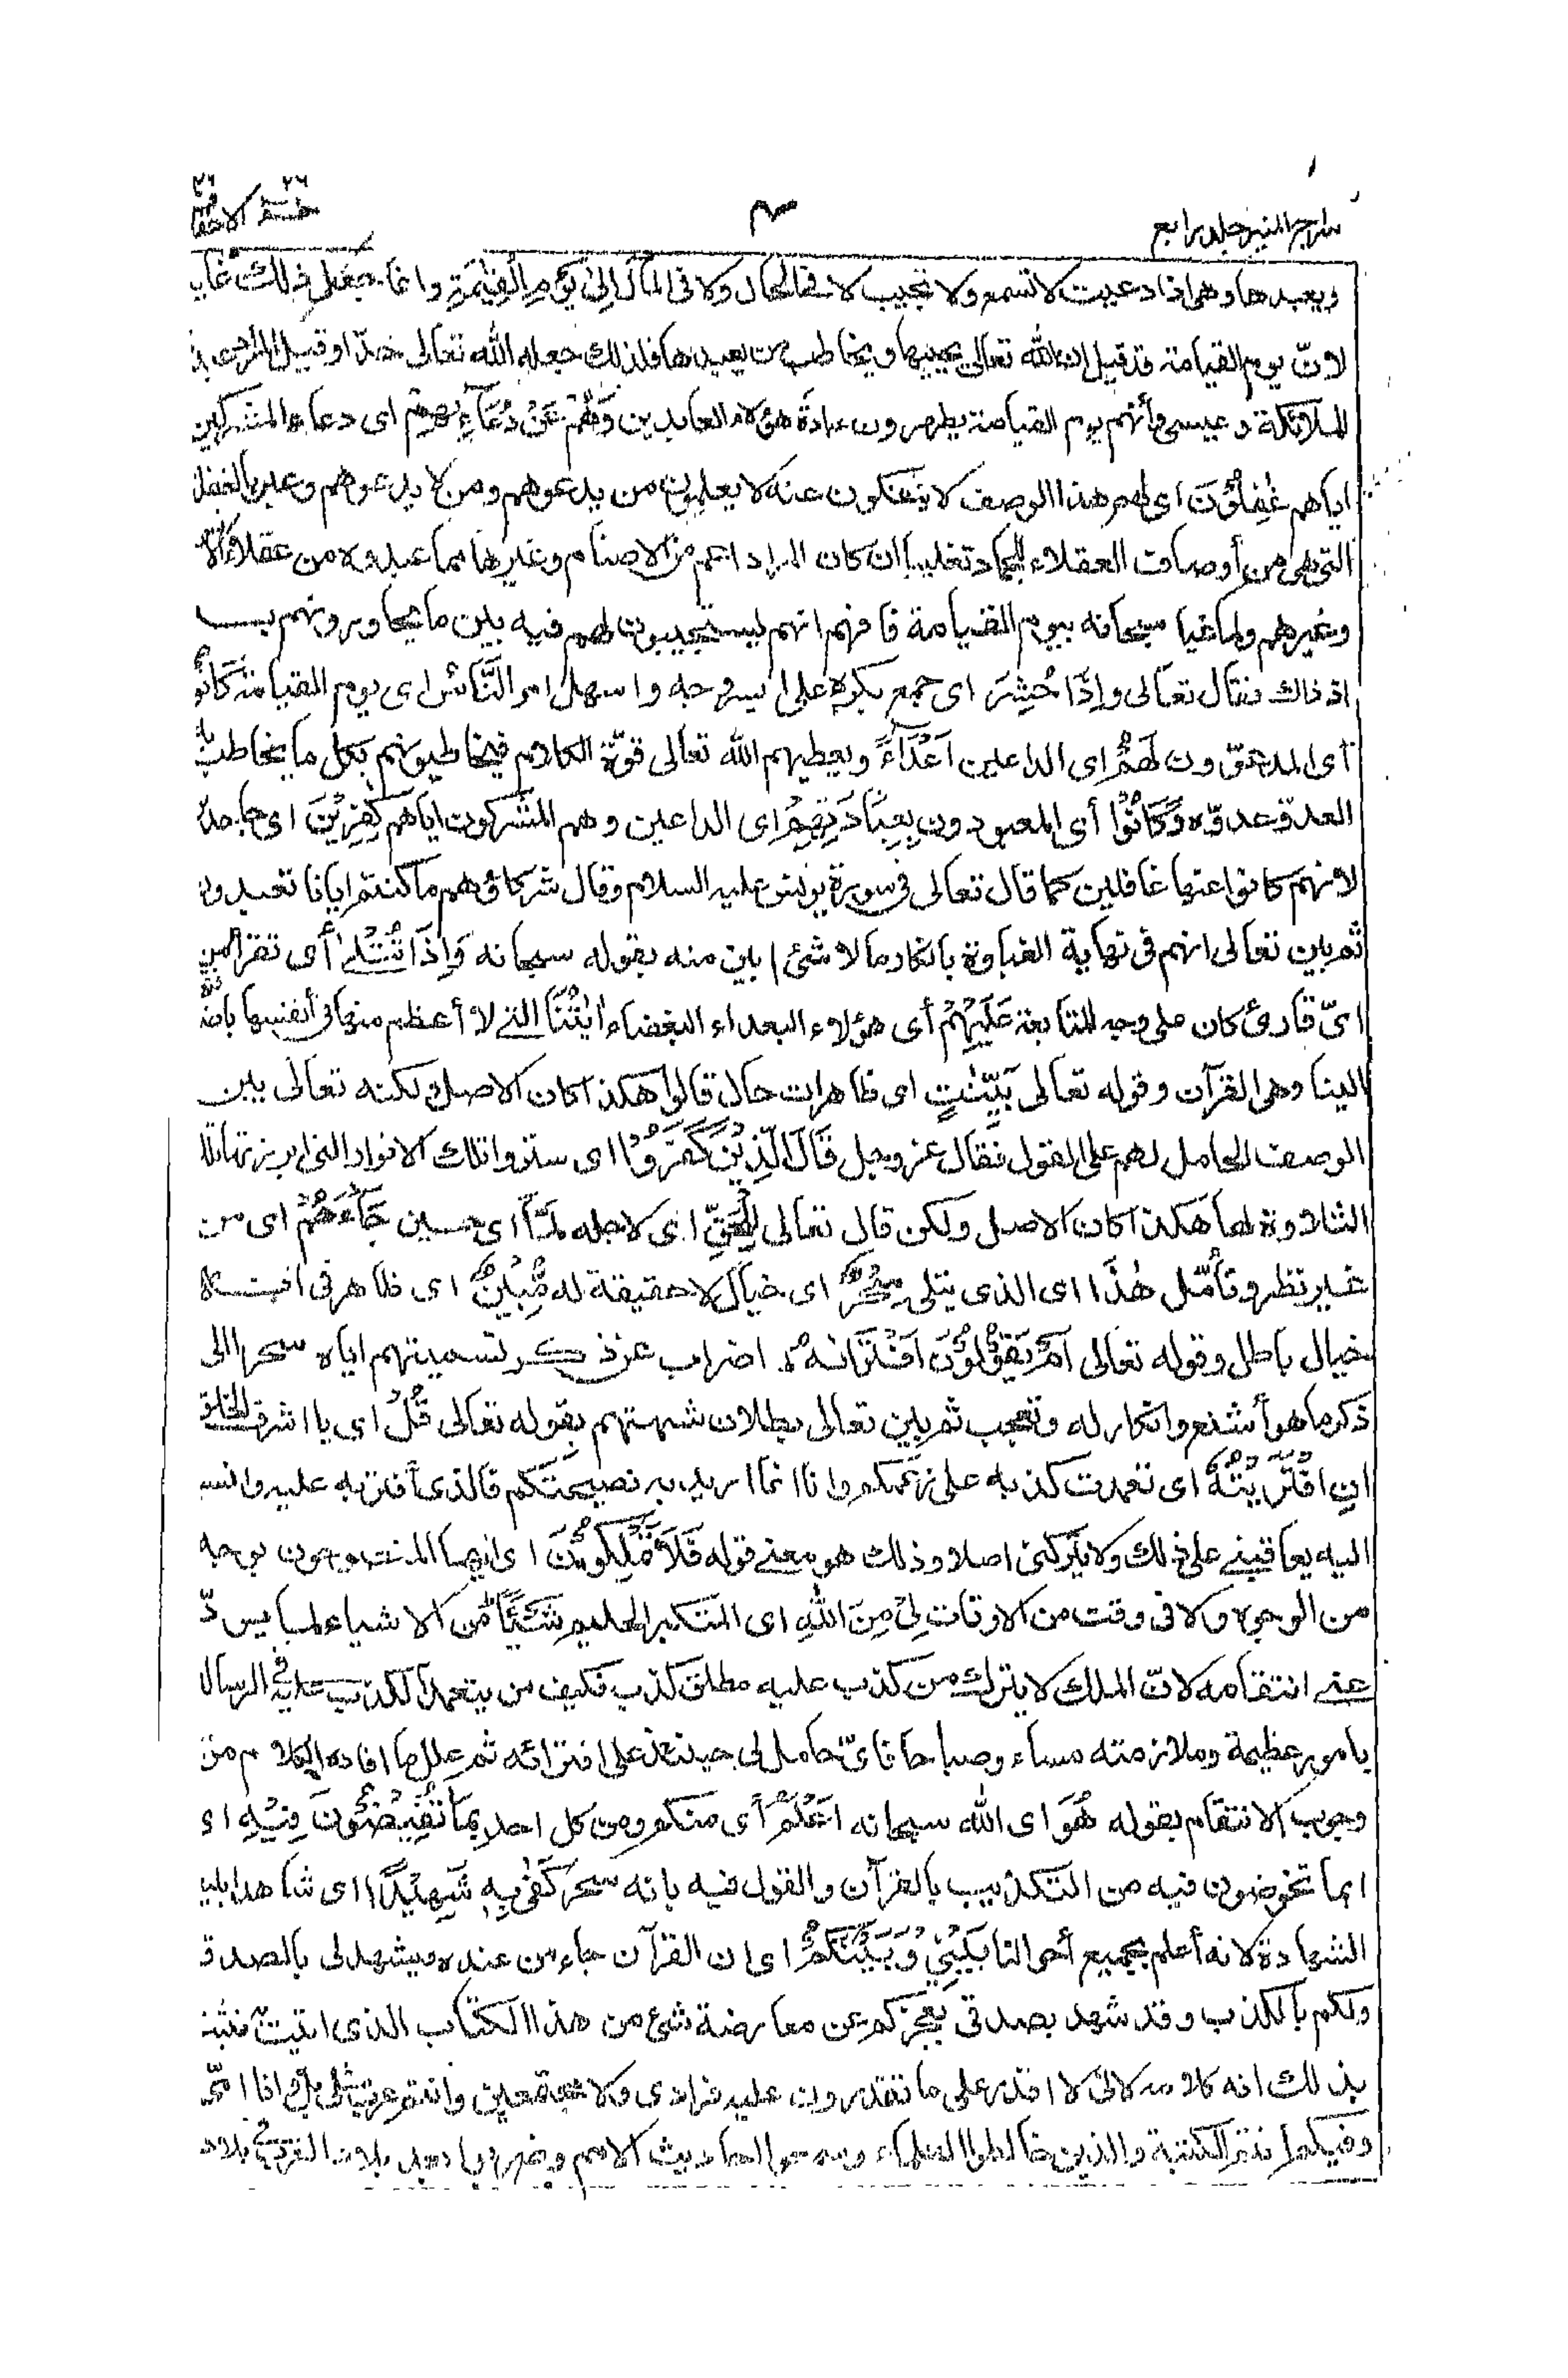 سراج المنير جلد رابع
٤
حٰمٓ ٢٦ الاحقاف ٤٦
ويعبدها وهى اذا دعيت لا تسمع ولا تجيب لا فى الحال ولا فى المآل اِلٰى يَوْمِ الْقِيٰمَةِ وانما جعل ذلك غاية
لانّ يوم القيامة قد قيل ان الله تعالى يحييها ويخاطب من يعبدها فلذلك جعله الله تعالى حدّا وقيل المراد
الملائكة وعيسى وأنهم يوم القيامة يظهرون عداوة هؤلاء العابدين وَهُمْ عَنْ دُعَآئِهِمْ اى دعاء المشركين
اياهم غٰفِلُوْنَ اى لهم هذا الوصف لا ينفكون عنه لا يعلمون من يدعوهم ومن لا يدعوهم وعبر بالغفلة
التى هى من أوصاف العقلاء للجماد تغليبا ان كان المراد اعم من الاصنام وغيرها مما عبدوه من عقلاء الانس
وغيرهم ولما غيا سبحانه بيوم القيامة فافهم انهم يستجيبون لهم فيه بين ما يحاورونهم به
اذ ذاك فقال تعالى وَاِذَا حُشِرَ اى جمع بكره على ايسر وجه واسهل امر النَّاسُ اى يوم القيامة كَانُوْا
أى المدعوّون لَهُمْ اى الداعين اَعْدَآءً ويعطيهم الله تعالى قوّة الكلام فيخاطبونهم بكل ما يخاطب به
العدوّ عدوّه وَّكَانُوْا أى المعبودون بِعِبَادَتِهِمْ اى الداعين وهم المشركون اياهم كٰفِرِيْنَ اى جاحدين
لانهم كانوا عنها غافلين كما قال تعالى فى سورة يونس عليه السلام وقال شركاؤهم ما كنتم ايانا تعبدون
ثم بين تعالى انهم فى نهاية الغباوة بانكار ما لا شئ ابين منه بقوله سبحانه وَاِذَا تُتْلٰى أى تقرأ من
اىّ قارئ كان على وجه المتابعة عَلَيْهِمْ أى هؤلاء البعداء البغضاء اٰيٰتُنَا التى لا أعظم منها فى أنفسها
الينا وهى القرآن وقوله تعالى بَيِّنٰتٍ اى ظاهرات حال قالوا هكذا كان الاصل ولكنه تعالى بين
الوصف الحامل لهم على القول فقال عز وجل قَالَ الَّذِيْنَ كَفَرُوْا اى ستروا تلك الانوار التى ابرزتها تلك
التلاوة لها هكذا كان الاصل ولكن قال تعالى لِلْحَقِّ اى لاجله لَمَّا اى حين جَآءَهُمْ اى من
غير نظر وتأمّل هٰذَا اى الذى يتلى سِحْرٌ اى خيال لا حقيقة له مُّبِيْنٌ اى ظاهر فى انه
خيال باطل وقوله تعالى اَمْ يَقُوْلُوْنَ افْتَرَاهُ اضراب عن ذكر تسميتهم اياه سحرا الى
ذكر ما هو أشنع وانكار له وتعجب ثم بين تعالى بطلان شبهتهم بقوله تعالى قُلْ اى يا اشرف الخلق
اِنِ افْتَرَيْتُهٗ اى تعمدت كذبه على زعمكم وانا انما اريد به نصيحتكم فالذى أفتريه عليه وانسبه
اليه يعاقبنى على ذلك ولا يتركنى اصلا وذلك هو معنى قوله فَلَا تَمْلِكُوْنَ اى ايها المنصوحون بوجه
من الوجوه ولا فى وقت من الاوقات لِىْ مِنَ اللّٰهِ اى المتكبر الحليم شَيْئًا من الاشياء لما يردّ
عنى انتقامه لانّ الملك لا يترك من كذب عليه مطلق كذب فكيف من يتعمد الكذب عليه فى الرسالة
بامور عظيمة وملازمته مساء وصباحا فاىّ حامل لى حينئذ على افترائه ثم علل ما افاده الكلام من
وجوب الانتقام بقوله هُوَ اى الله سبحانه اَعْلَمُ أى منكم ومن كل احد بِمَا تُفِيْضُوْنَ فِيْهِ اى
بما تخوضون فيه من التكذيب بالقرآن والقول فيه بانه سحر كَفٰى بِهٖ شَهِيْدًا اى شاهدا بليغ
الشهادة لانه أعلم بجميع أحوالنا بَيْنِىْ وَبَيْنَكُمْ اى ان القرآن جاء من عنده فيشهد لى بالصدق
ولكم بالكذب وقد شهد بصدقى بعجزكم عن معارضة شئ من هذا الكتاب الذى اتيت به فثبت
بذلك انه كلامه لانى لا اقدر على ما تقدرون عليه فرادى ولا مجتمعين وانتم عرب مثلى بل انا امى
وفيكم انتم الكتبة والذين خالطوا العلماء وسمعوا احاديث الامم وضربوا بعد بلاد العرب فى بلاد